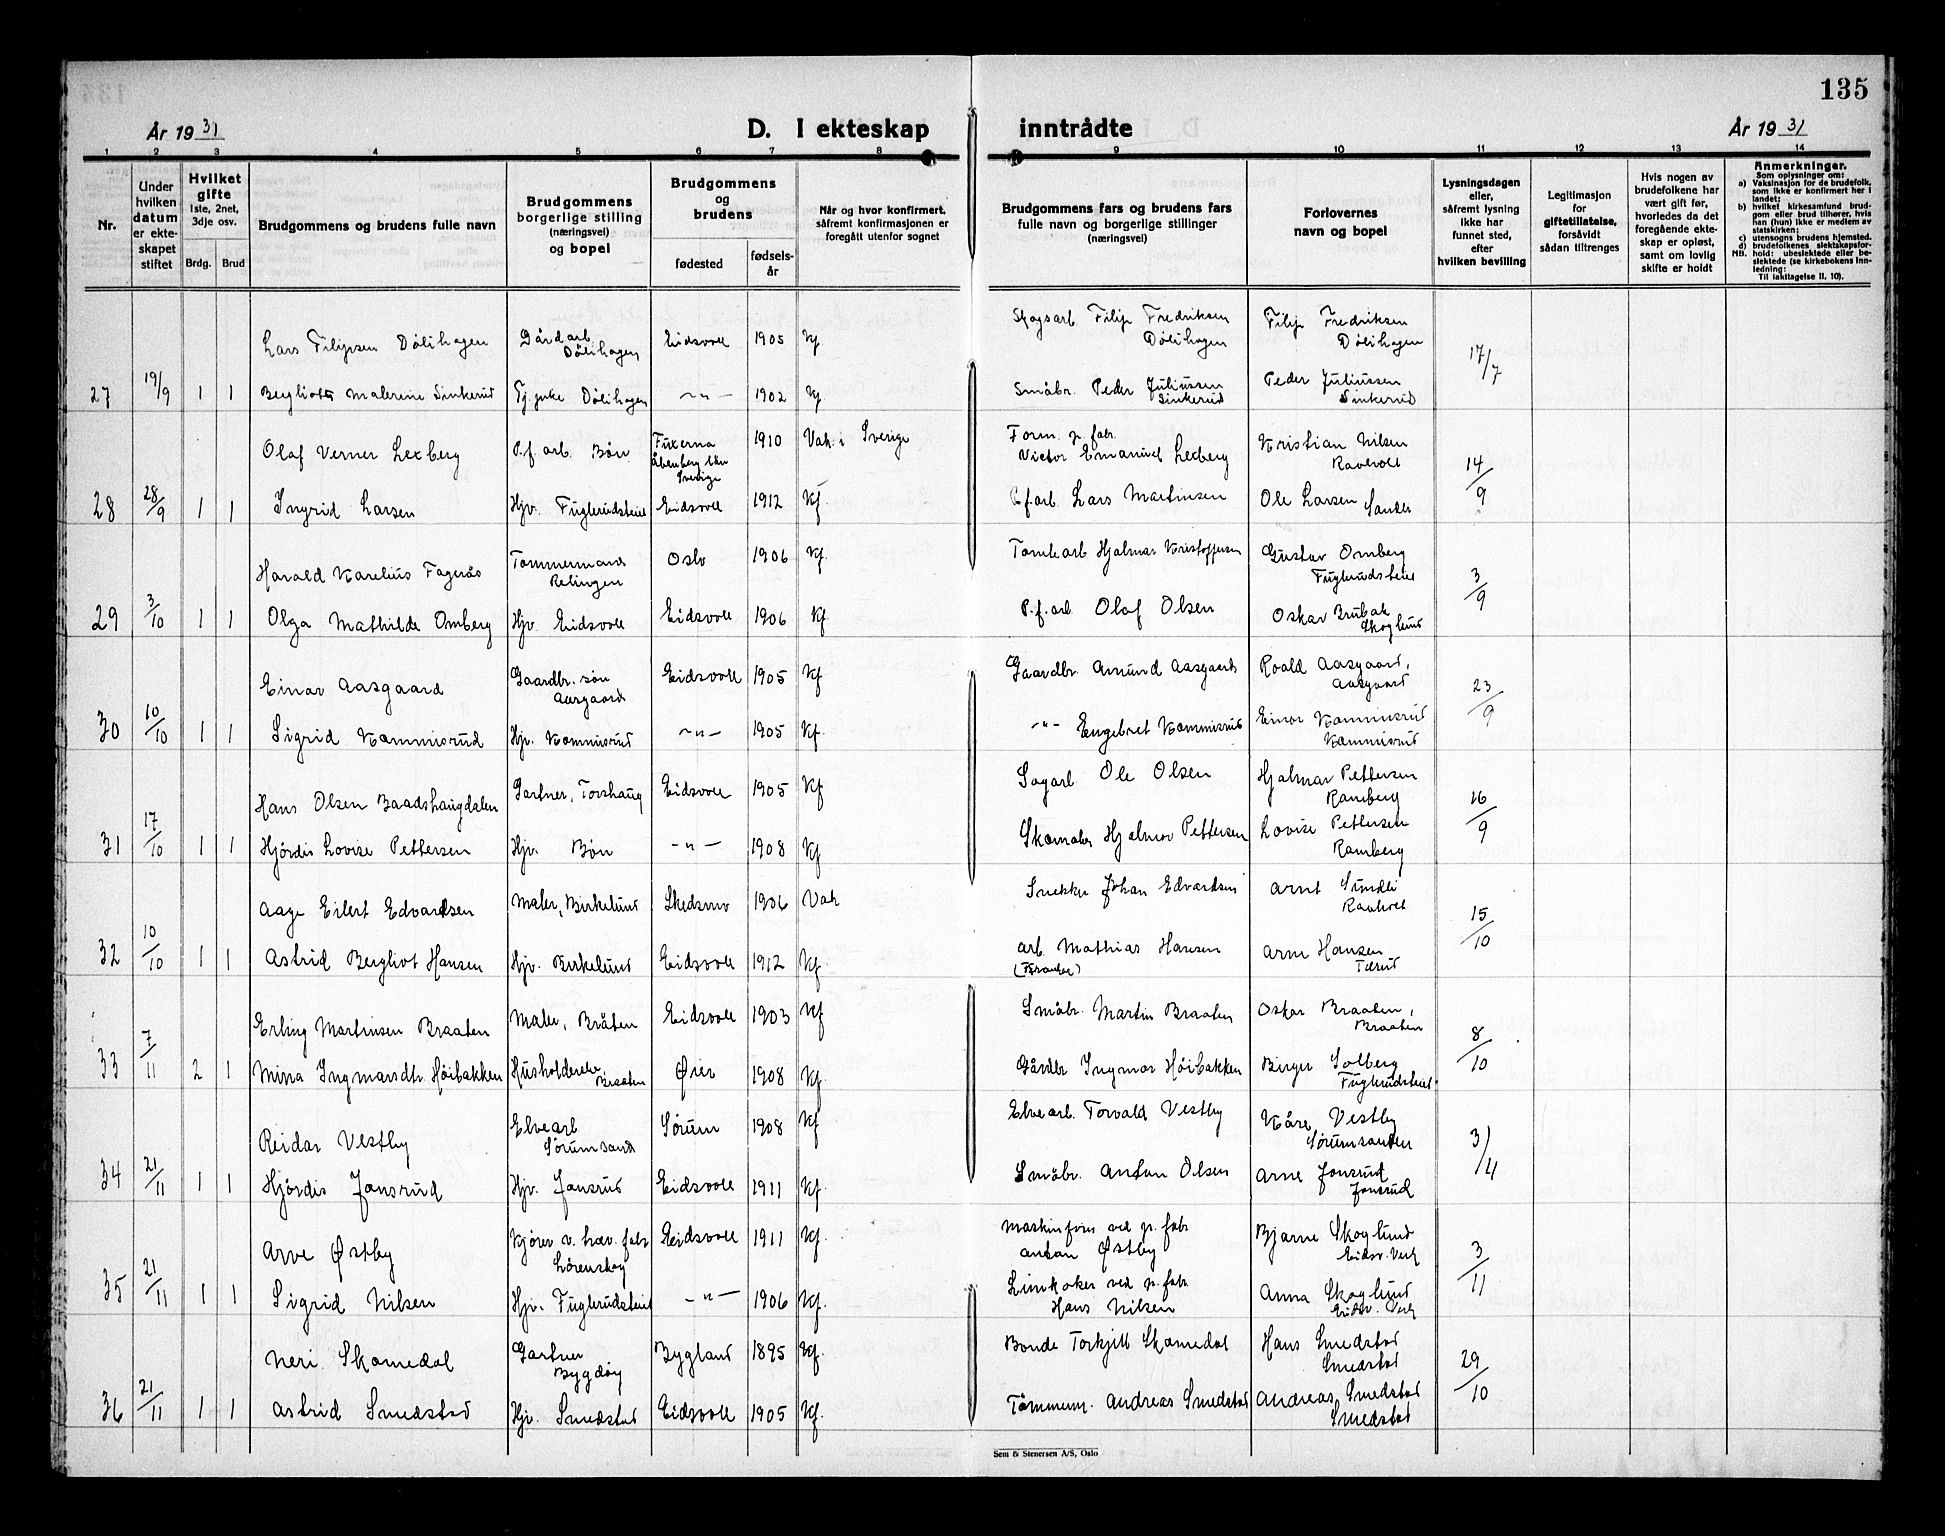 135
År 1931
D. I ekteskap inntrådte
År 1931
1 2 3 4 5 6 7 8 9 10 11 12 13 14
Nr.
Under hvilken datum er ekteskapet stiftet
Hvilket gifte 1ste, 2net, 3dje osv.
Brdg. Brud
Brudgommens og brudens fulle navn
Brudgommens borgerlige stilling (næringsvei) og bopel
Brudgommens og brudens
fødested
fødselsår
Når og hvor konfirmert, såfremt konfirmasjonen er foregått utenfor sognet
Brudgommens fars og brudens fars fulle navn og borgerlige stillinger (næringsvei)
Forlovernes navn og bopel
Lysningsdagen eller, såfremt lysning ikke har funnet sted, efter hvilken bevilling
Legitimasjon for giftetillatelse, forsåvidt sådan tiltrenges
Hvis nogen av brudefolkene har vært gift før, hvorledes da det foregående ekteskap er opløst, samt om lovlig skifte er holdt
Anmerkninger.
Som oplysninger om:
a) Vaksinasjon for de brudefolk, som ikke er konfirmert her i landet;
b) hvilket kirkesamfund brudgom eller brud tilhører, hvis han (hun) ikke er medlem av statskirken;
c) utensogns brudens hjemsted.
d) brudefolkenes slektskapsforhold: ubeslektede eller beslektede (se kirkebokens Innledning:
NB. Til iakttagelse II, 10).
Lars Filipsen Dölihagen Gårdarb. Dölihagen Eidsvoll 1905 Kf Skogsarb. Filip Fredriksen Dölihagen Filip Fredriksen Dölihagen 17/7
27 19/9 1 1 Bergliot Malerine Sinkerud Tj.pike Dölihagen -"- 1902 Kf Småbr. Peder Juliussen Sinkerud Peder Juliussen Sinkerud
Olaf Verner Lexberg P.f. arb. Bøn Fuxerna Sverige 1910 Vak. i Sverige Form. p. fabr. Victor Emanuel Lexberg Kristian Nilsen Raaholt 14/9
28 28/9 1 1 Ingrid Larsen Hjv. Fuglerudsteiet Eidsvoll 1912 Kf P.f.arb. Lars Martinsen Ole Larsen Sander
Harald Karelius Fagerås Tømmermand Relingen Oslo 1906 Kf. Tomtearb Hjalmar Kristoffersen Gustav Omberg Fuglerudsteiet 3/9
29 3/10 1 1 Olga Mathilde Omberg Hjv. Eidsvoll Eidsvoll 1906 Kf. P.f.arb Olaf Olsen Oskar Brubak Skoglund
Einar Aasgaard Gaardbr. søn Aasgaard Eidsvoll 1905 Kf Gaardbr. Amund Aasgaard Roald Aasgaard, Aasgaard 23/9
30 10/10 1 1 Sigrid Kommisrud Hjv. Kommisrud -"- 1905 Kf. -"- Engebret Kommisrud Einar Kommisrud Kommisrud
Hans Olsen Baadshaugdalen Gartner, Torshaug Eidsvoll 1905 Kf Sagarb Ole Olsen Hjalmar Pettersen Ramberg 16/9
31 17/10 1 1 Hjördis Lovise Pettersen Hjv. Bøn -"- 1908 Kf Skomaker Hjalmar Pettersen Lovise Pettersen Ramberg
Aage Eilert Edvardsen Maler, Birkelund Skedsmo 1906 Vak Snekker Johan Edvardsen Arnt Sundli Raaholt 15/10
32 10/10 1 1 Astrid Bergliot Hansen Hjv. Birkelund Eidsvoll 1912 Kf. arb. Mathias Hansen Arne Hansen Tærud
Erling Martinsen Braaten Maler, Bråten Eidsvoll 1903 Kf Småbr. Martin Braaten Oskar Braaten, Braaten 8/10
33 7/11 2 1 Mina Ingmarsdtr. Höibakken Husholderske Braaten Øier 1908 Kf. Gårdbr Ingmar Höibakken Birger Solberg Fuglerudsteiet
Reidar Vestby Elvearb Sörumsand Sørum 1908 Kf Elvearb. Torvald Vestby Kåre Vestby Sörumsanden 3/11
34 21/11 1 1 Hjördis Jonsrud Hjv. Jonsrud Eidsvoll 1911 Kf. Småbr. Anton Olsen Arne Jonsrud Jonsrud
Arve Østby Kjører v. hæv. fabr Lörenskog Eidsvoll 1911 Kf. Maskinform ved p. fabr Anton Østby Bjarne Skoglund Eidsv. Verk 3/11
35 21/11 1 1 Sigrid Nilsen Hjv. Fuglerudsteiet -"- 1906 Kf. Limkoker ved p. fabr. Hans Nilsen Anna Skoglund Eidsv. Verk
Neri Skomedal Gartner Bygdöy Bygland 1895 Kf. Bonde Torkjell Skomedal Hans Smedstad Smedstad 29/10
36 21/11 1 1 Astrid Smedstad Hjv. Smedstad Eidsvoll 1905 Kf. Tömmerm. Andreas Smedstad Andreas Smedstad Smedstad
Sem & Stenersen A/S, Oslo